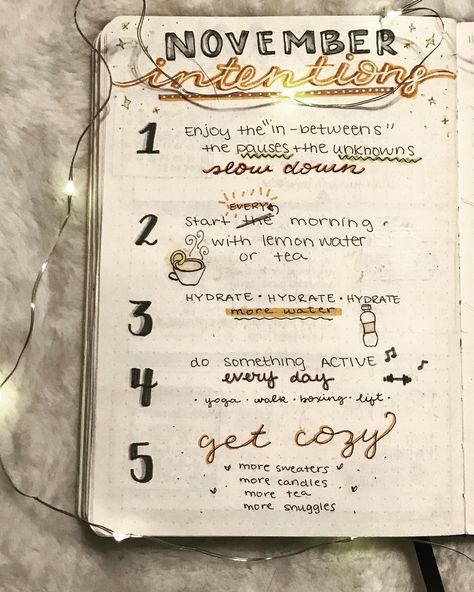 NOVEMBER
intentions
1 Enjoy the "in-betweens"
the pauses + the unknowns
slow down
EVERY
2 Start the morning
with lemon water
or tea
3 HYDRATE · HYDRATE · HYDRATE
more water
4 do something ACTIVE
every day
· yoga · walk · boxing · lift ·
5 get cozy
more sweaters
more candles
more tea
more snuggles